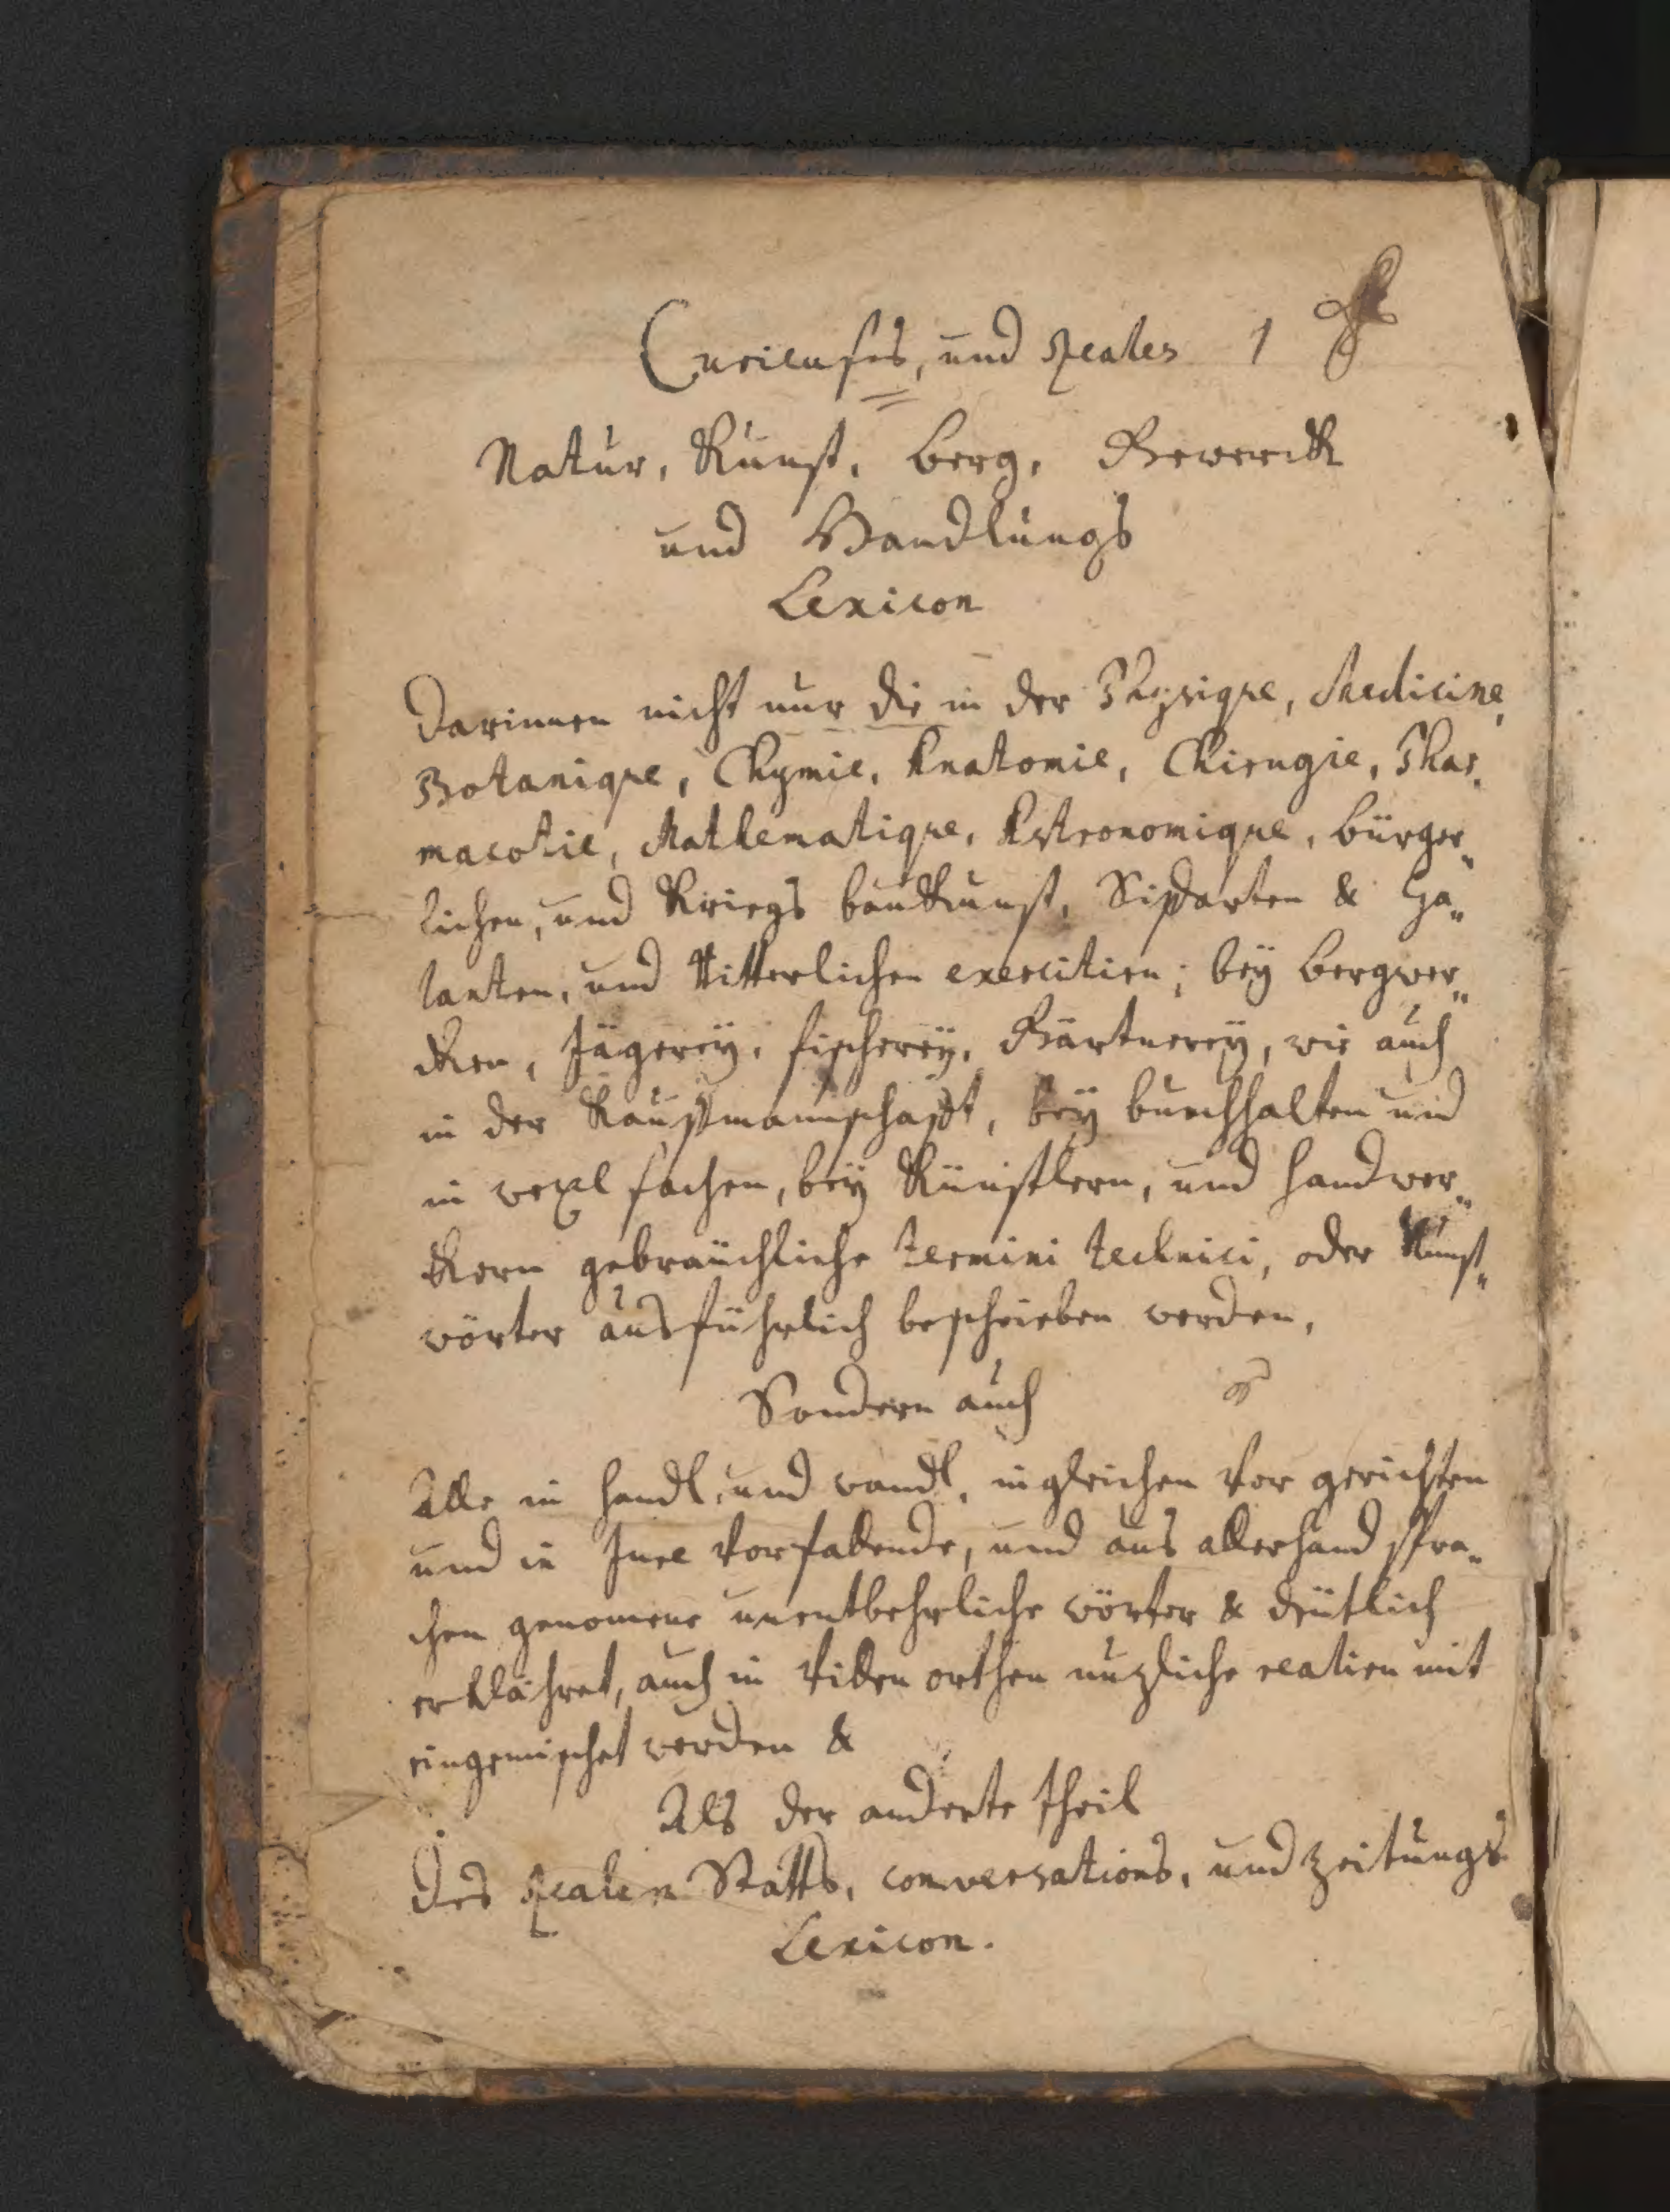 Curieuses, und Reales 1
Natur, Kunst, berg, Gewerck
und Handlungs
Lexicon
Darinnen nicht nur die in der Physique, Medicine,
Botanique, Chymie, Anatomie, Chirugie, Phar„
macotie, Mathematique, Astronomique, bürger„
lichen, und Kriegs baukunst, Schifarten & Ga„
lanten, und Ritterlichen exercitien; bey bergwer„
cken, Jägerey, fischerey, Gärtnerey, wie auch
in der Kaufmannschaft, bey buechhalten und
in wexl sachen, bey Künstlern, und handwer„
ckern gebräuchliche termini technici, oder Kunst„
wörter ausführlich beschrieben werden,
Sondern auch
Alle in handl, und wandl, ingleichen vor gerichten
und in Jure vorfallende, und aus allerhand spra„
chen genomene unentbehrliche wörter & deütlich
erklähret, auch in villen orthen nuzliche realien mit
eingemischet werden &
Als der anderte theil
des Realen Statts, conversations, und zeitungs
Lexicon.